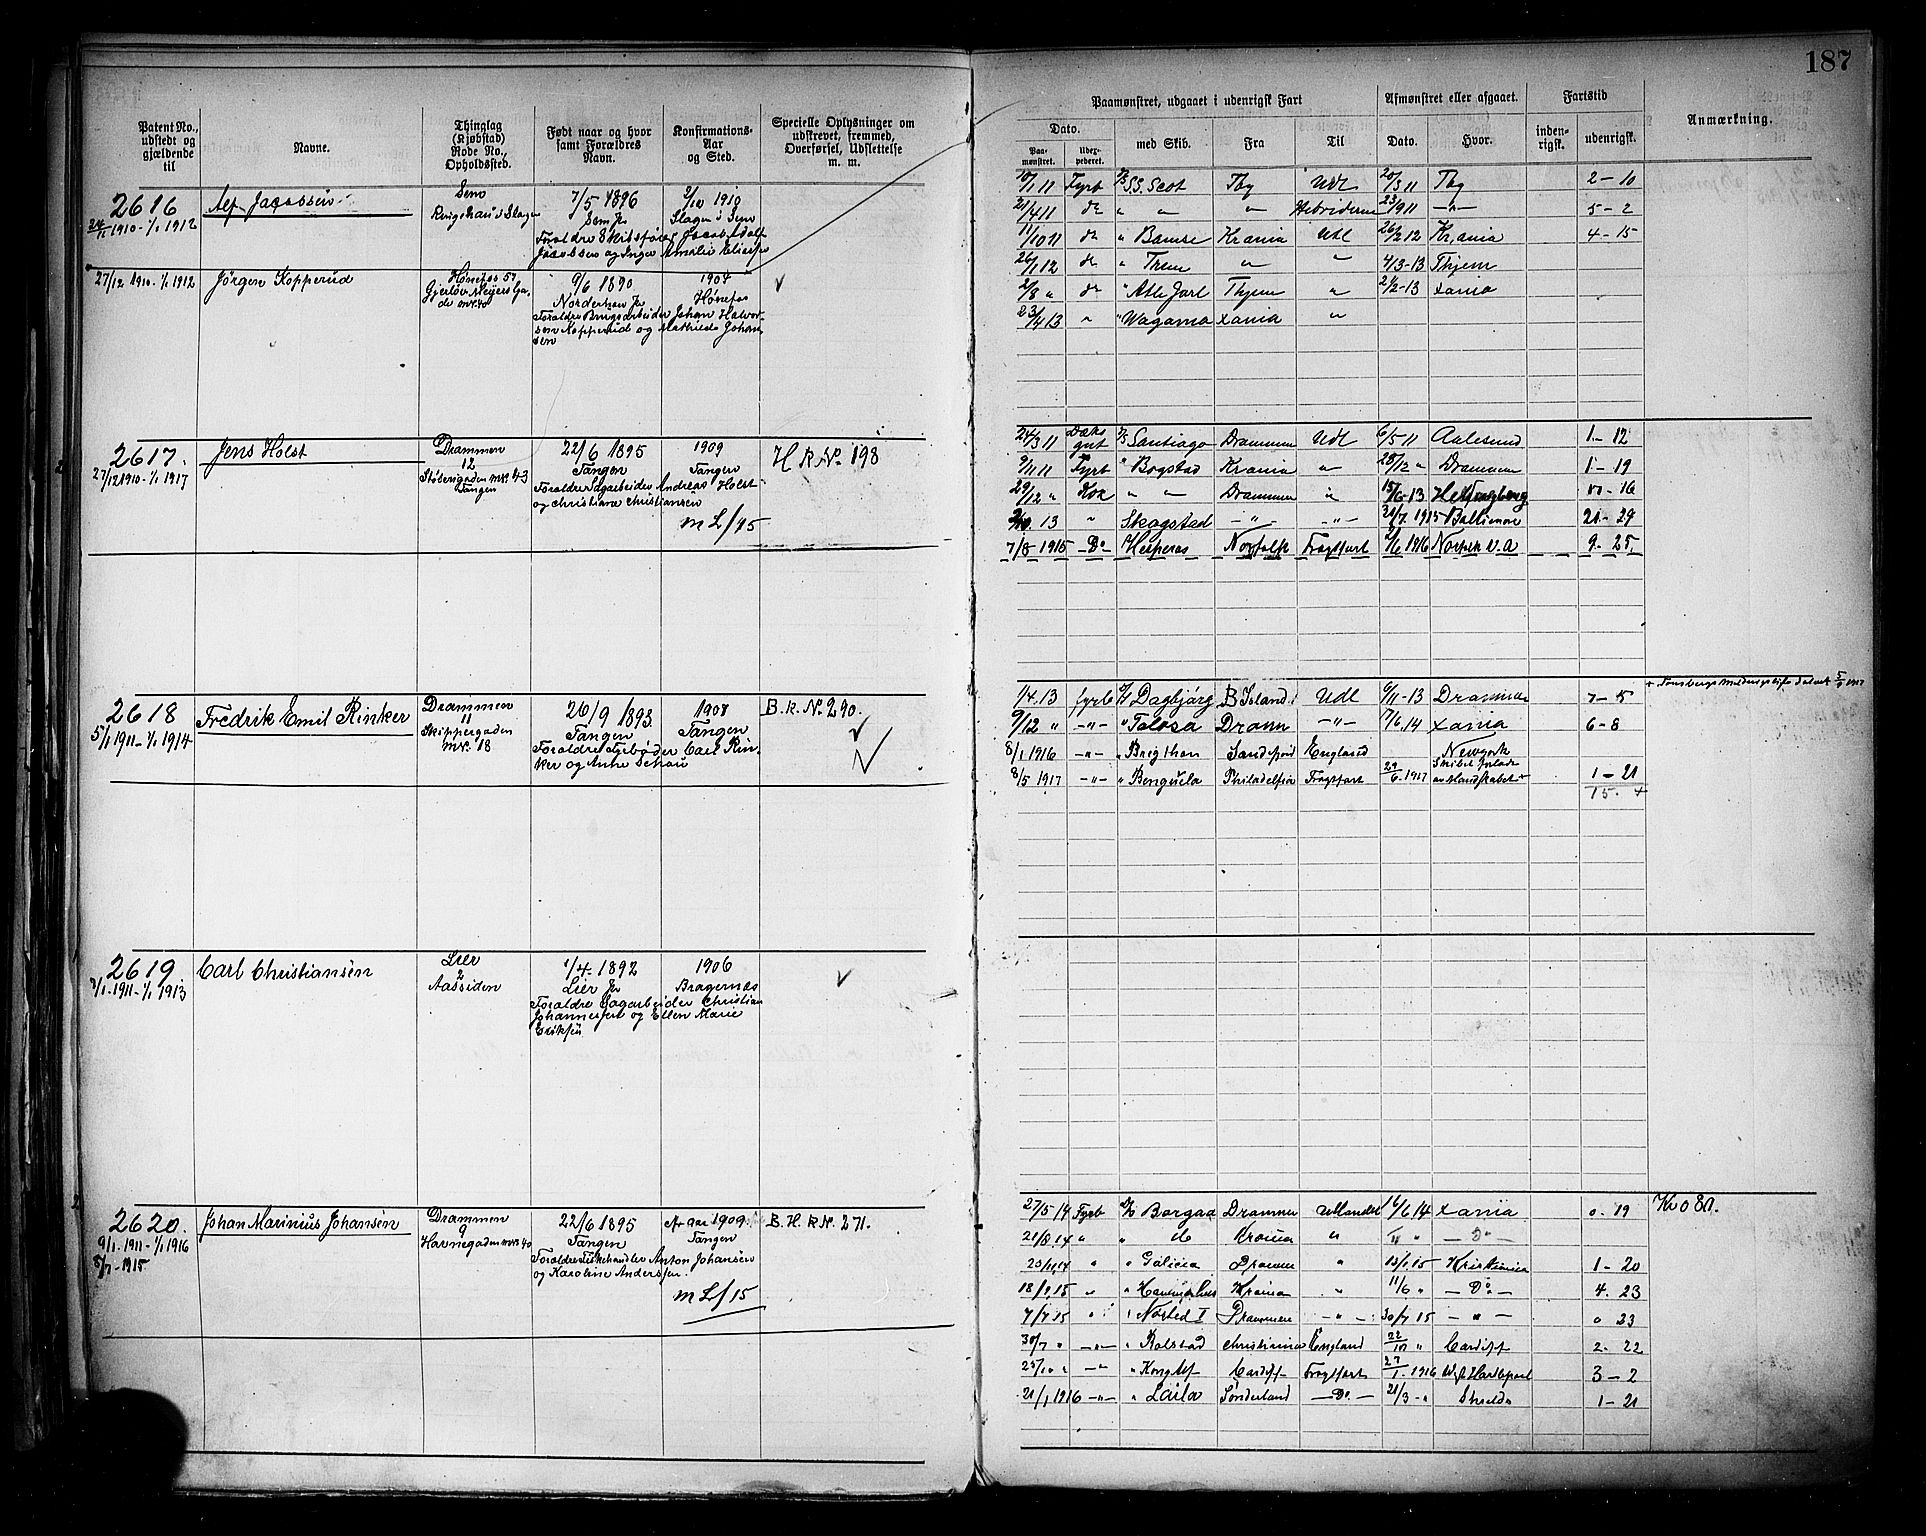 187
Patent No., udstedt og gjældende til
Navne.
Thinglag (Kjøbstad) Rode No., Opholdssteb.
Født naar og hvor samt Forældres Navn.
Konfirmations-Aar og Sted.
Specielle Oplysninger om udskrevet, fremmed, Overførsel, Udslettelse m. m.
Paamønstret, udgaaet i udenrigsk Fart
Afmønstret eller afgaaet.
Fartstid
Anmærkning.
Dato.
Paa-mønstret.
med Skib.
Fra
Til
Dato.
Hvor.
inden-rigsk.
udenrigsk.
2616
24/11 1910 - 1/1 1912
Alf Jacobsen
Sem
Ringshaug i Slagen
7/5 1896
Sem Jr
Forældre Skibsfører Jacob Adolf
Jacobsen og Inger Amalie Elise
2/10 1910
Slagen i Sem
10/1 11 Fyrb SS. Scot Tbg Udl 20/3 11 Tbg 2-10
21/4 11 do " " " Hebriderne 23/9 11 -"- 5-2
11/10 11 do " Bamse Krania Udl 26/2 12 Krania 4-15
27/12 1910 - 1/1 1912
Jörgen Kopperud
Hønefos 57
Gjerløv Meyers Ga-
de nr. 40
9/6 1890
Norderhov Jr
Forældre Brugsarbeider Johan Halvor-
sen Kopperud og Mathilde Johan-
sen
1904
Hønefos
26/1 12 do " Trem " " 4/3-13 Thjem
2/8 " do " Atle Jarl Thjem " 21/2-13 Xania
23/4 13 " " Wagama Xania "
2617.
27/12 1910 - 1/1 1917
Jens Holst
Drammen
12
Støberigaden nr. 43
Tangen
22/6 1895
Tangen
Forældre Sagarbeider Andreas Holst
og Christiane Christiansen
1909
Tangen
m L/15
H. R. No. 198
24/3 11 Dæks gut Santiago Drammen Udl 6/5 11 Aalesund 1-12
9/11 11 Fyrb " Bogstad Krania " 28/12 " Drammen 1-19
29/12 " Kok " " Drammen " 15/6-13 10-16
13 " Skogstad -"- -"- 21/7 1915 Baltimore 21-29
7/8 1915 -Do Hesperos Norfolk Fragtfart 2/6 1916 9-25.
2618
5/1 1911 - 1/1 1914
Fredrik Emil Rinker
Drammen
11
Skippergaden
nr. 18
26/9 1893.
Tangen
Forældre Fyrbøder Carl Rin-
ker og Anne Schau
1908
Tangen
B. R. No. 290.
1/4 13 fyrb Dagbjørg Island Udl 6/11-13 Drammen 7-5
9/12 " -"- " Tolosa Dramn -"- 7/6 14 Xania 6-8
8/1 1916 -"- " Brighton Sandefjord England Newyork
8/5 1917 -"- " Benguela Philadelfia Fragtfart 29/6 1917 1-21
15. 4
2619
7/1-1911 - 1/1 1913
Carl Christiansen
Lier
2
Aassiden
1/4-1892
Lier Jr
Forældre Sagarbeider Christian
Johannesen og Ellen Marie
Eriksen
1906
Bragernæs
2620.
9/1-1911 - 1/1 1916
8/7-1915
Johan Marinius Johansen
Drammen
9
Havnegaden nr. 40
22/6 1895
Tangen
Forældre Fiskehandler Anton Johansen
og Karoline Andersen.
1909.
Tangen
m L/15
B. H. R. No. 271.
27/5 14 Fyrb Borgaa Drammen Udlandet 16/6 14 Xania 0. 19
21/8 14 " " do Krania " " -Do-
23/10 14 " " Galicia Drammen " 13/1 15 Kristiania 1-20
18/2 15 " " Krania " 11/6 " -Do- 4. 23
7/7 15 " " Norsted I Drammen -"- 30/7 15 -"- 0 23
30/7 " -"- " Rolstad Christiania England 22/10 " Cardiff 2. 22
25/10 " -"- " Kong Alf Cardiff Fragtfart 27/1 1916 3-2
21/1 1916 -"- " Laila Sunderland -Do- 21/3 -" Shields 1-21